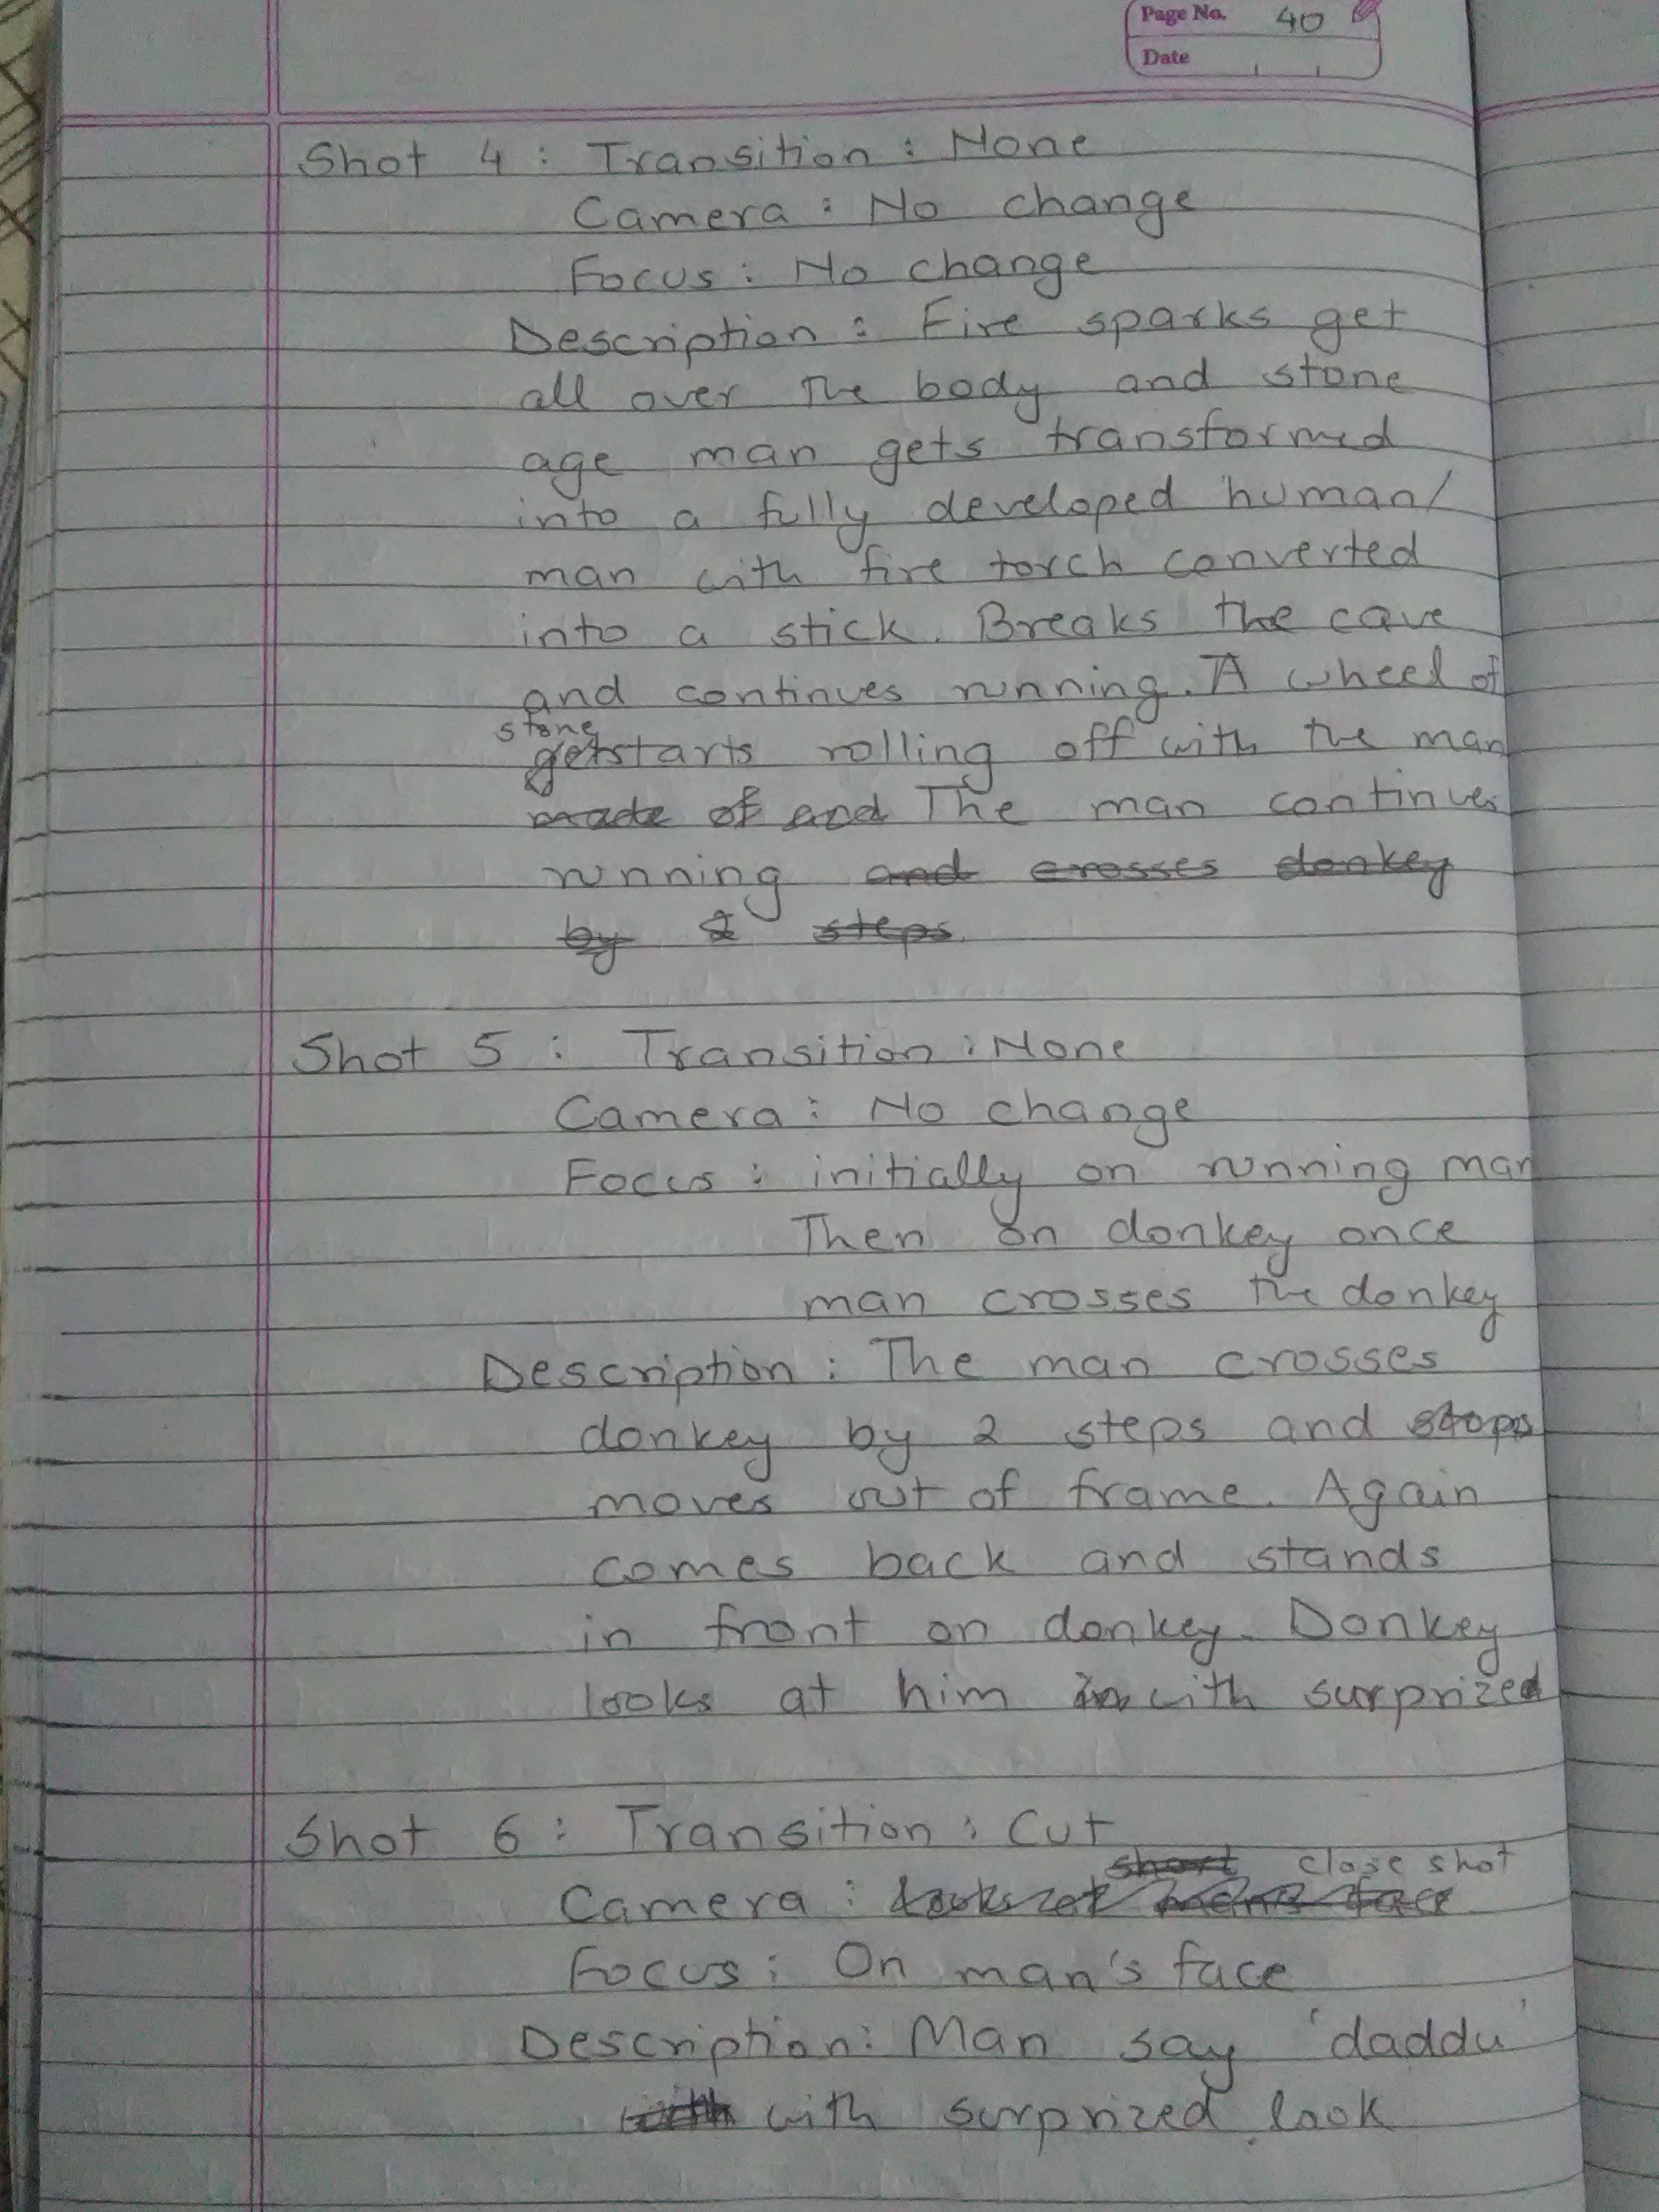 Page No. 40
Date
Shot 4 : Transition : None
Camera : No change
Focus : No change
Description : Fire sparks get
all over the body and stone
age man gets transformed
into a fully developed human/
man with fire torch converted
into a stick. Breaks the cave
and continues running. A wheel of
stone
get starts rolling off with the man
made of and The man continues
running and crosses donkey
by 2 steps.
Shot 5 : Transition : None
Camera : No change
Focus : initially on running man
Then on donkey once
man crosses the donkey
Description : The man crosses
donkey by 2 steps and stops
moves out of frame. Again
comes back and stands
in front on donkey. Donkey
looks at him in with surprized
Shot 6 : Transition : Cut
short close shot
Camera : face
Focus : On man's face
Description : Man say 'daddu'
with with surprized look